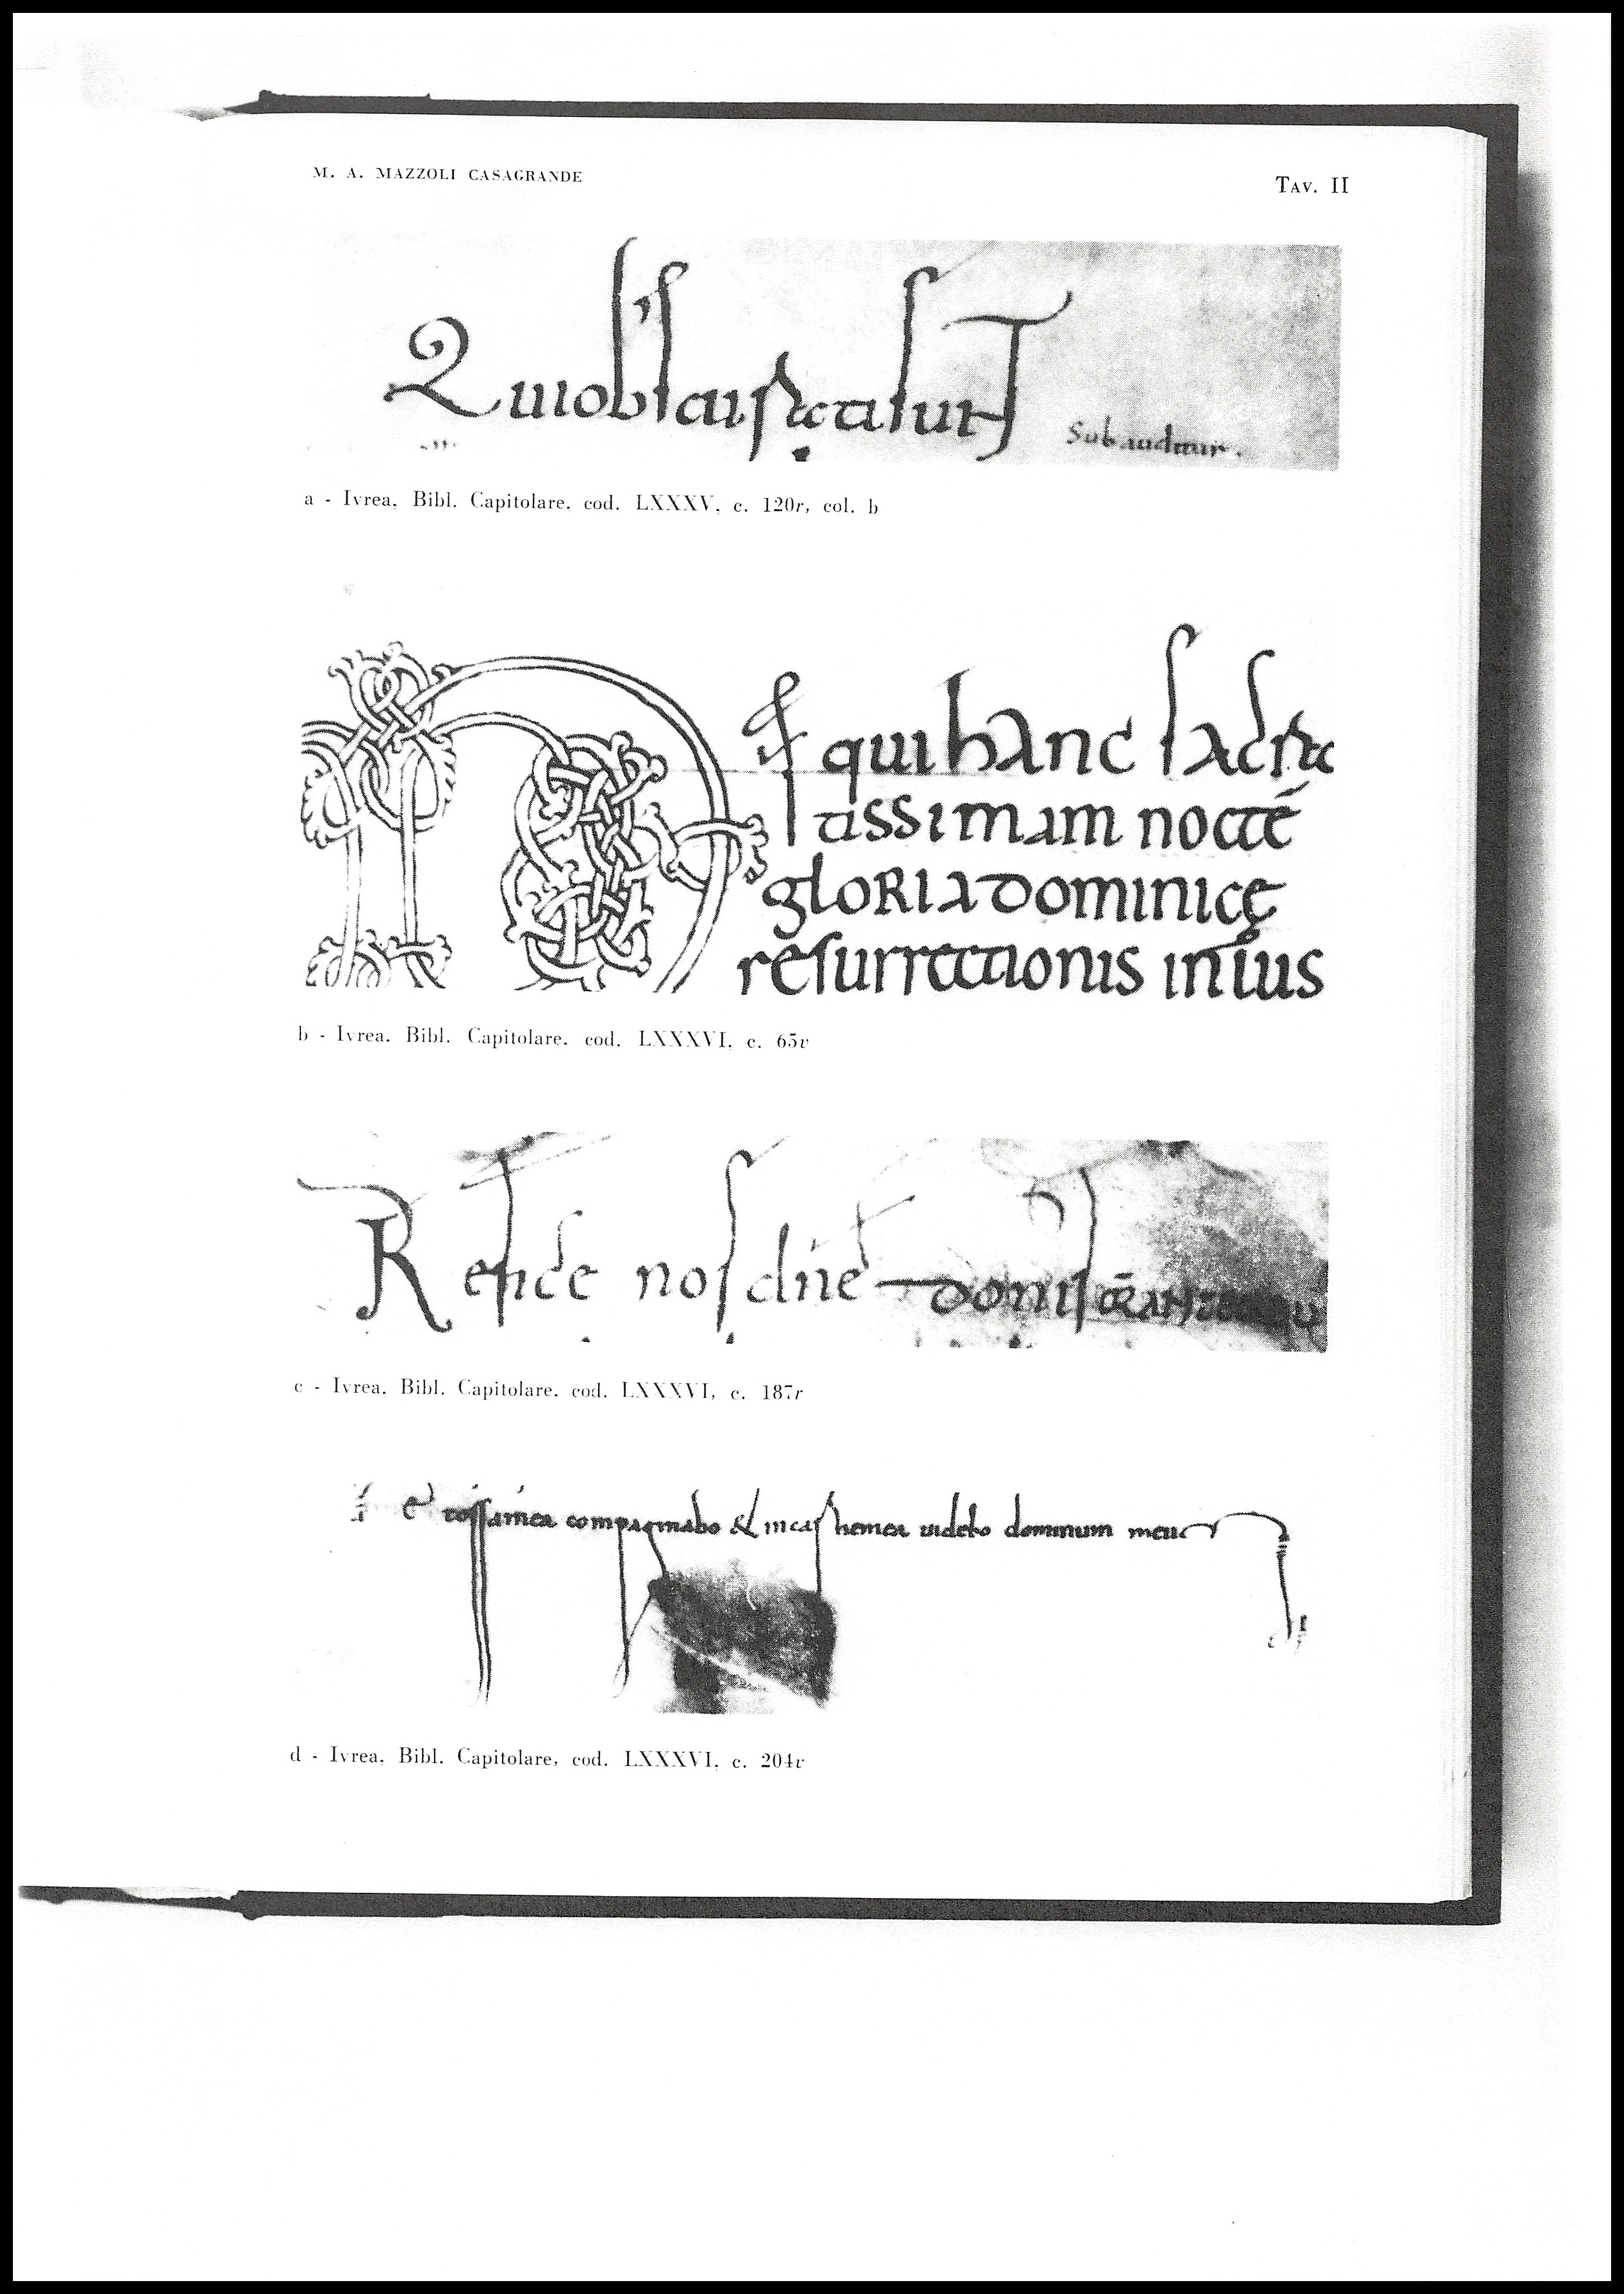 M. A. MAZZOLI CASAGRANDE
TAV. II
Qui obscuis
Subauditur.
a - Ivrea. Bibl. Capitolare. cod. LXXXV. c. 120r, col. b
D̅s̅ qui hanc sacra
tissimam noctē
gloria dominicę
resurrectionis inlus
b - Ivrea. Bibl. Capitolare. cod. LXXXVI. c. 65v
nos dn̄e donis
c - Ivrea. Bibl. Capitolare. cod. LXXXVI, c. 187r
Et ossa mea compaginabo & in carne mea videbo dominum meu
d - Ivrea. Bibl. Capitolare, cod. LXXXVI. c. 204v